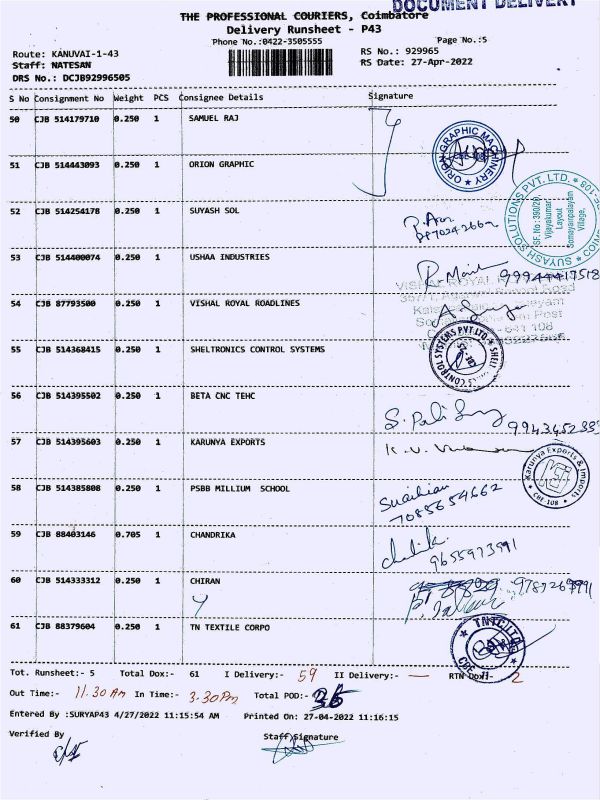 DOCUMENT DELIVERY
THE PROFESSIONAL COURIERS, Coimbatore
Delivery Runsheet - P43
Phone No.:0422-3505555
Page No.:5
Route: KANUVAI-1-43
RS No.: 929965
Staff: NATESAN
RS Date: 27-Apr-2022
DRS No.: DCJB92996505
S No Consignment No Weight PCS Consignee Details Signature
50 CJB 514179710 0.250 1 SAMUEL RAJ
51 CJB 514443093 0.250 1 ORION GRAPHIC
ORION GRAPHIC MACHINERY
52 CJB 514254178 0.250 1 SUYASH SOL
SUYASH SOLUTIONS PVT. LTD.
SF.No:390/2
Vijayakumar
Layout
Somayampalayam
Village,
53 CJB 514400074 0.250 1 USHAA INDUSTRIES
54 CJB 87793500 0.250 1 VISHAL ROYAL ROADLINES
55 CJB 514368415 0.250 1 SHELTRONICS CONTROL SYSTEMS
CONTROL SYSTEMS PVT LTD
56 CJB 514395502 0.250 1 BETA CNC TEHC
57 CJB 514395603 0.250 1 KARUNYA EXPORTS
Karunya Exports & Imports
CBE-108
58 CJB 514385808 0.250 1 PSBB MILLIUM SCHOOL
7085654662
59 CJB 88403146 0.705 1 CHANDRIKA
9655973991
60 CJB 514333312 0.250 1 CHIRAN
61 CJB 88379604 0.250 1 TN TEXTILE CORPO
Tot. Runsheet:- 5 Total Dox:- 61 I Delivery:- 59 II Delivery:- — RTN Dox:- 2
Out Time:- 11.30 Am In Time:- 3.30Pm Total POD:-
Entered By :SURYAP43 4/27/2022 11:15:54 AM Printed On: 27-04-2022 11:16:15
Verified By
Staff Signature